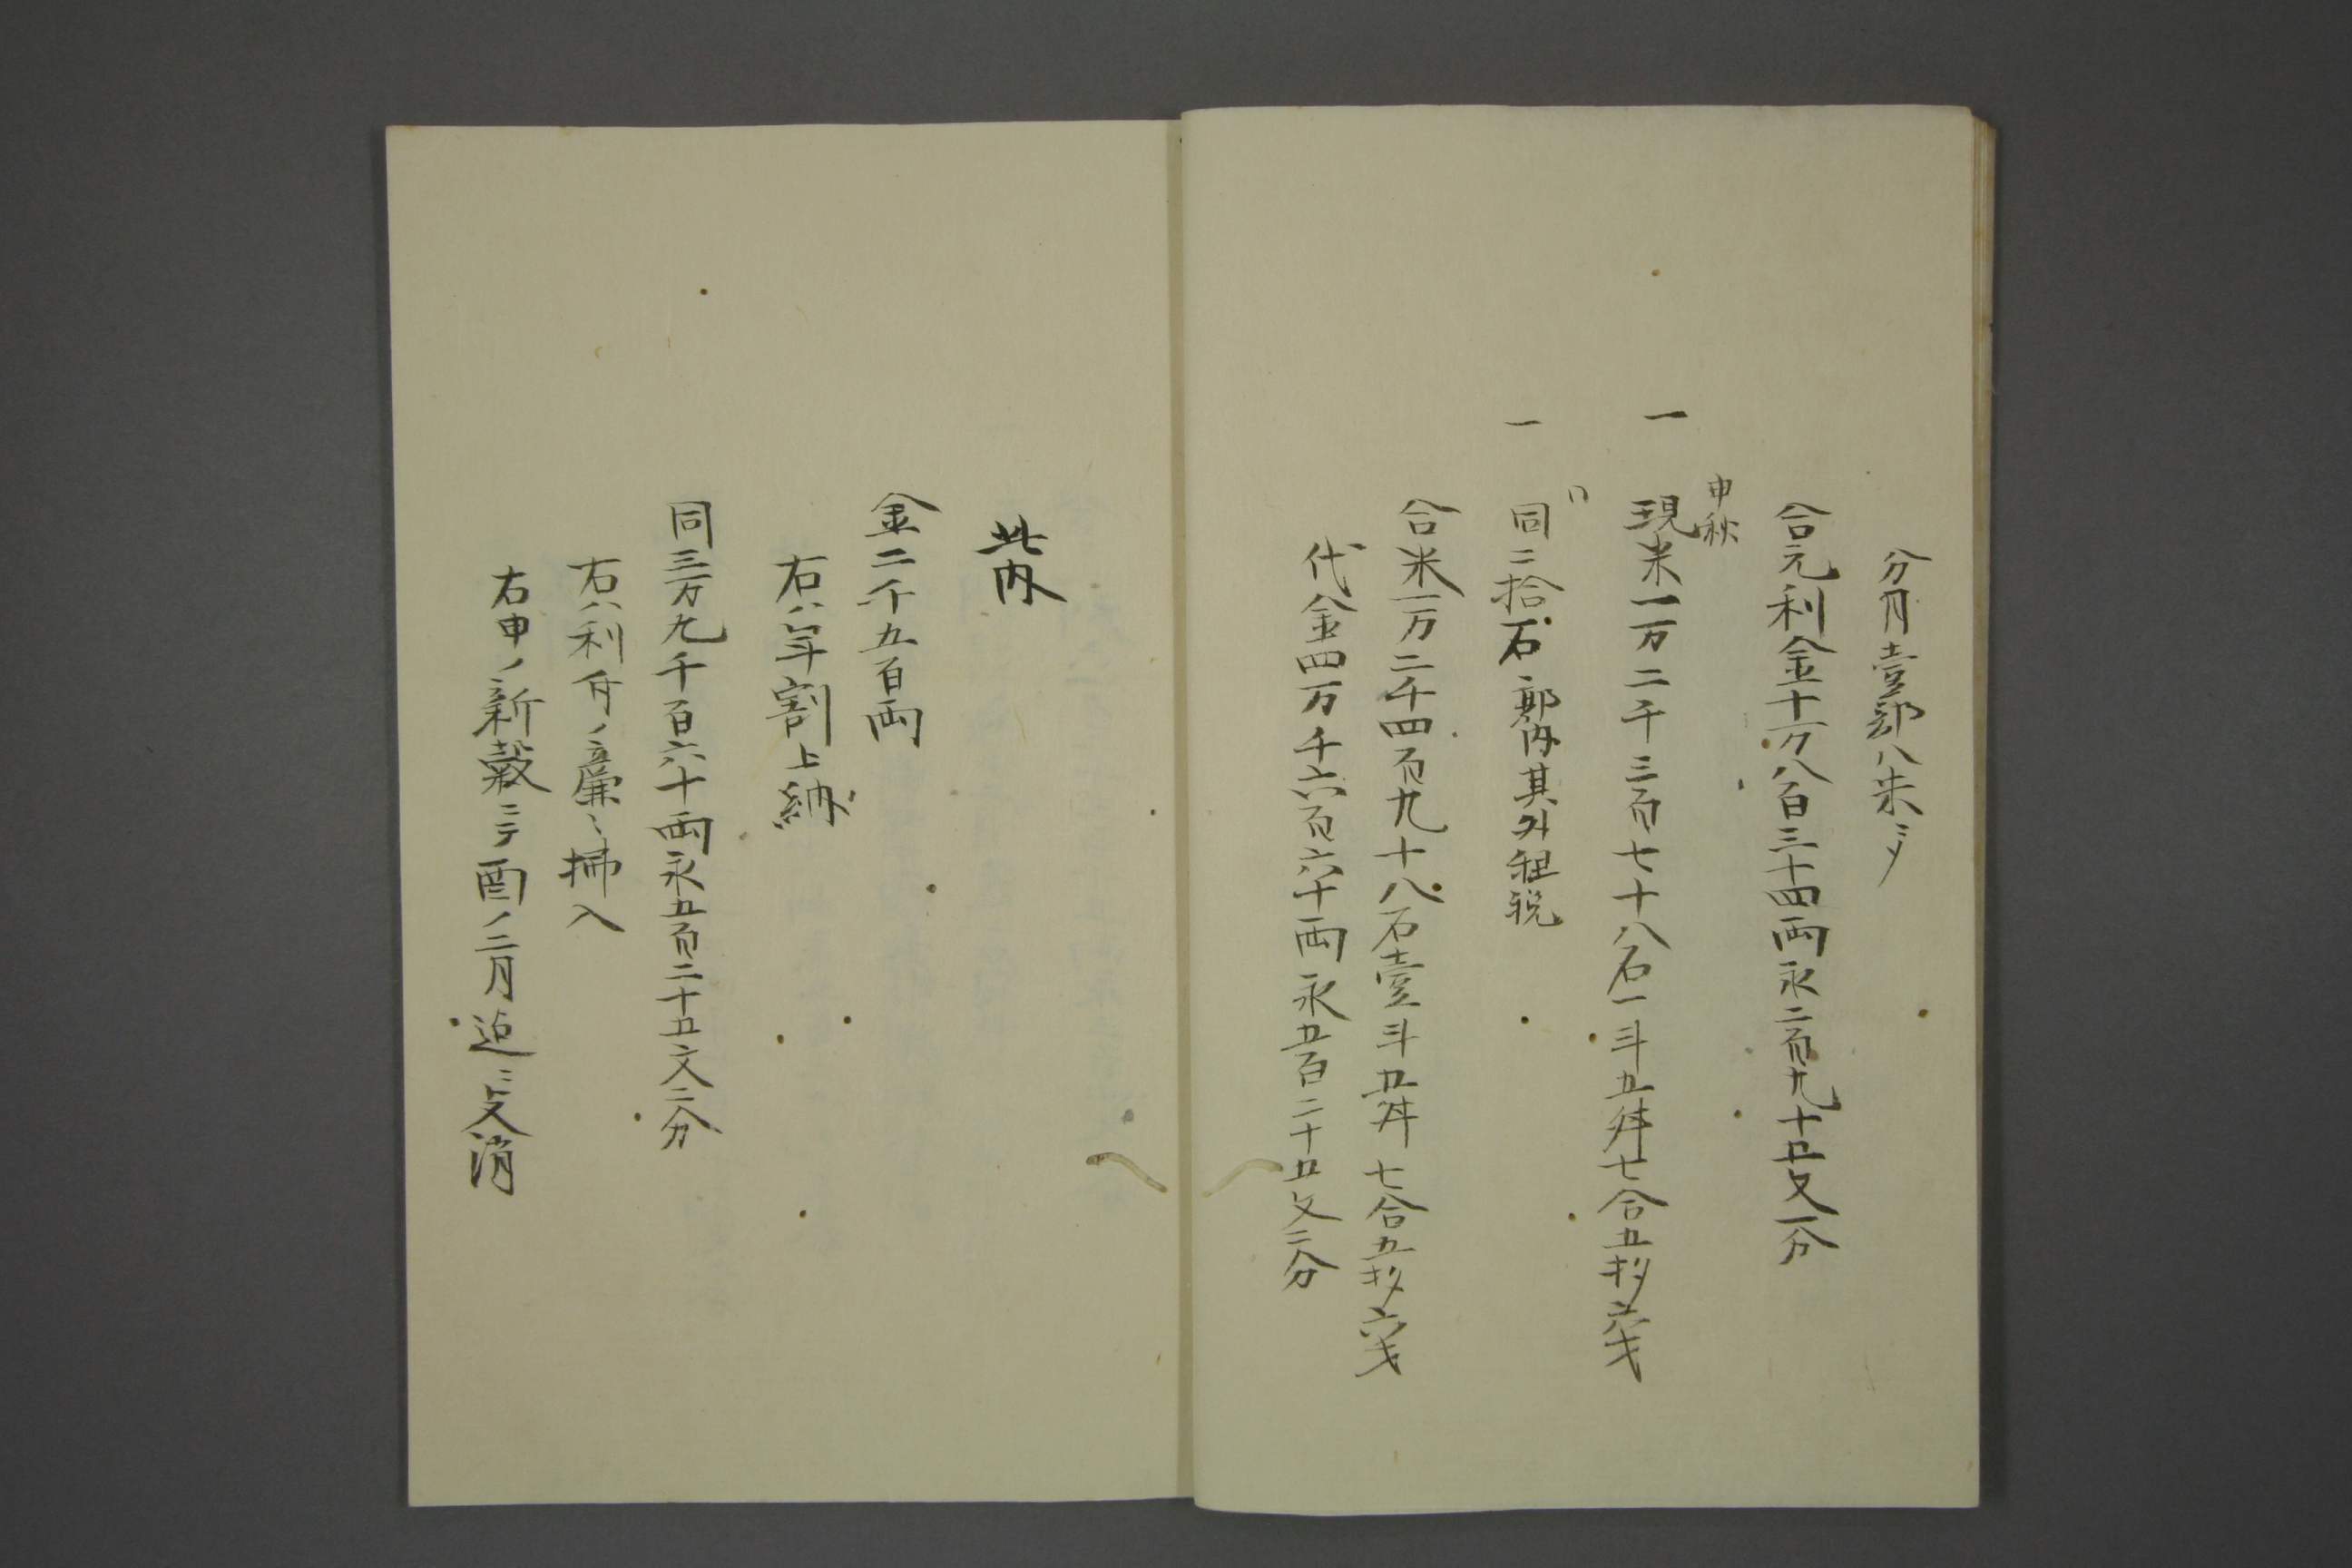 分月壹部八朱ニメ
合元利金十万八百三十四両永二百九十五文一分
申秋
一 現米一万二千三百七十八石一斗五舛七合五抄六才
〃
一 同二拾石 郭内其外租税
合米一万二千四百九十八石壹斗五舛七合五抄六才
代金四万千六百六十両永五百二十五文二分
此内
金二千五百両
右ハ年割上納
同三万九千百六十両永五百二十五文二分
右ハ利付ノ廉ニ拂入
右申ノ新穀ニテ酉ノ二月迠ニ上文消